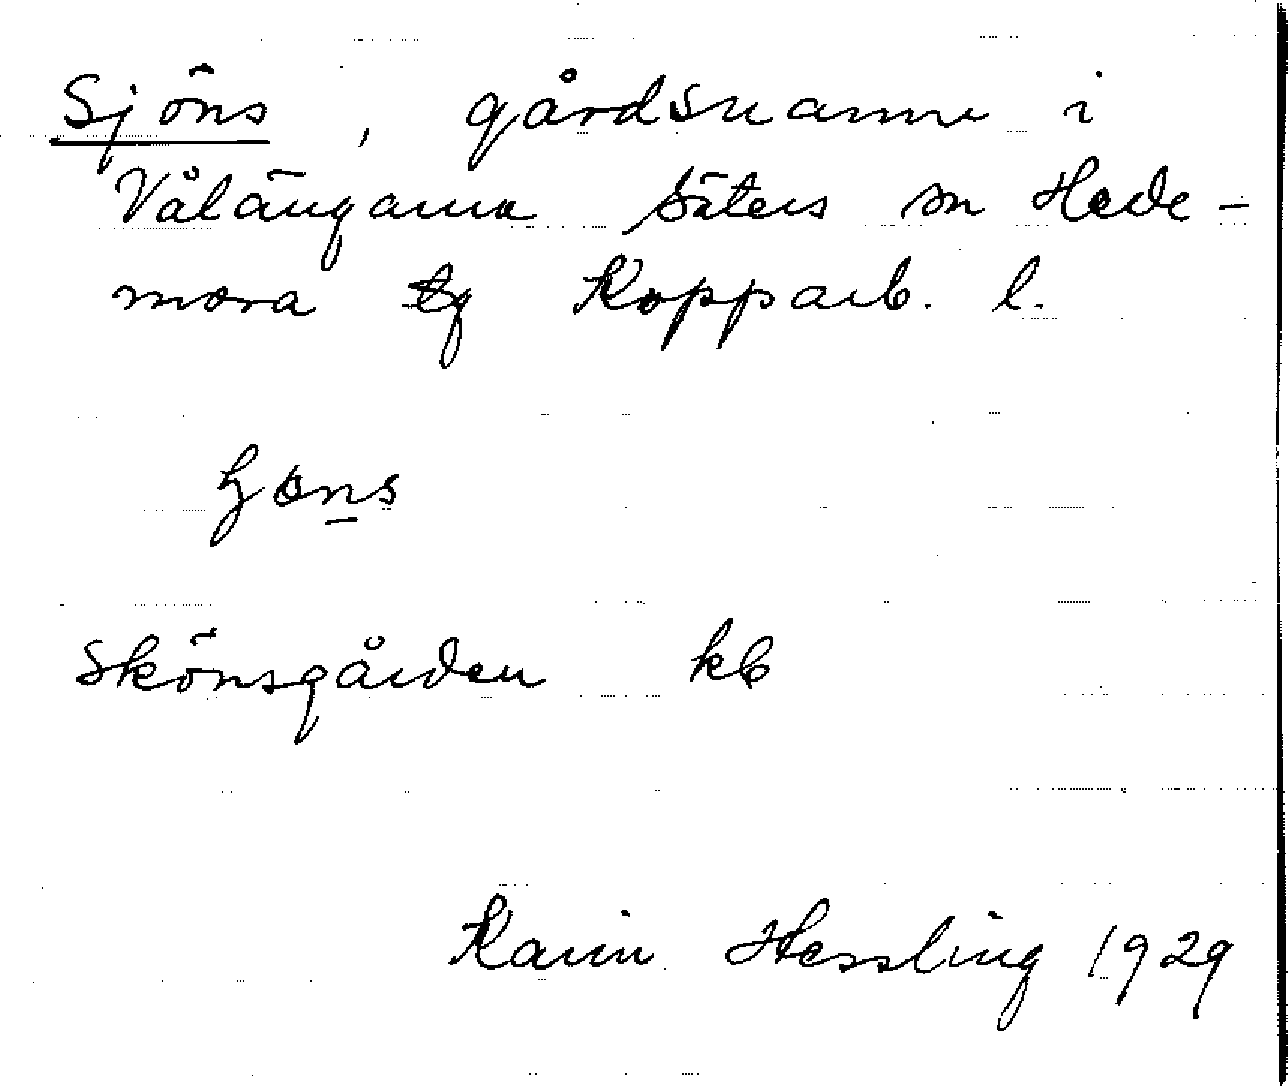 Sjöns, gårdsnamn i
Vålängarna Säters sn Hede-
mora tg Kopparb. l.
Skönsgården kb
Karin Hessling 1929